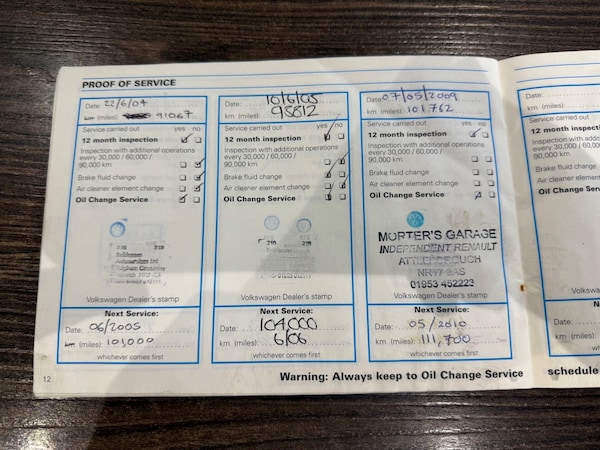 PROOF OF SERVICE
Date: 22/6/04
km (miles): 91067
Service carried out yes no
12 month inspection
Inspection with additional operations
every 30,000 / 60,000 /
90,000 km
Brake fluid change
Air cleaner element change
Oil Change Service
218
Volkswagen Dealer's stamp
Next Service:
Date: 06/2005
km (miles): 101,000
whichever comes first
12
Date: 10/6/05
km (miles): 95812
Service carried out yes no
12 month inspection
Inspection with additional operations
every 30,000 / 60,000 /
90,000 km
Brake fluid change
Air cleaner element change
Oil Change Service
218 218
Volkswagen Dealer's stamp
Next Service:
Date: 104,000
km (miles): 6/06
whichever comes first
Date: 07/05/2009
km (miles): 101762
Service carried out yes no
12 month inspection
Inspection with additional operations
every 30,000 / 60,000 /
90,000 km
Brake fluid change
Air cleaner element change
Oil Change Service
MORTER'S GARAGE
INDEPENDENT RENAULT
ATTLEBOROUGH
01953 452223
Volkswagen Dealer's stamp
Next Service:
Date: 05/2010
km (miles): 111,700
whichever comes first
Warning: Always keep to Oil Change Service schedule
Date:
km (miles):
Service carried out
12 month inspecti
Inspection with addi
every 30,000 / 60,00
90,000 km
Brake fluid change
Air cleaner element
Oil Change Service
Volkswa
N
Date:
km (miles):
whic